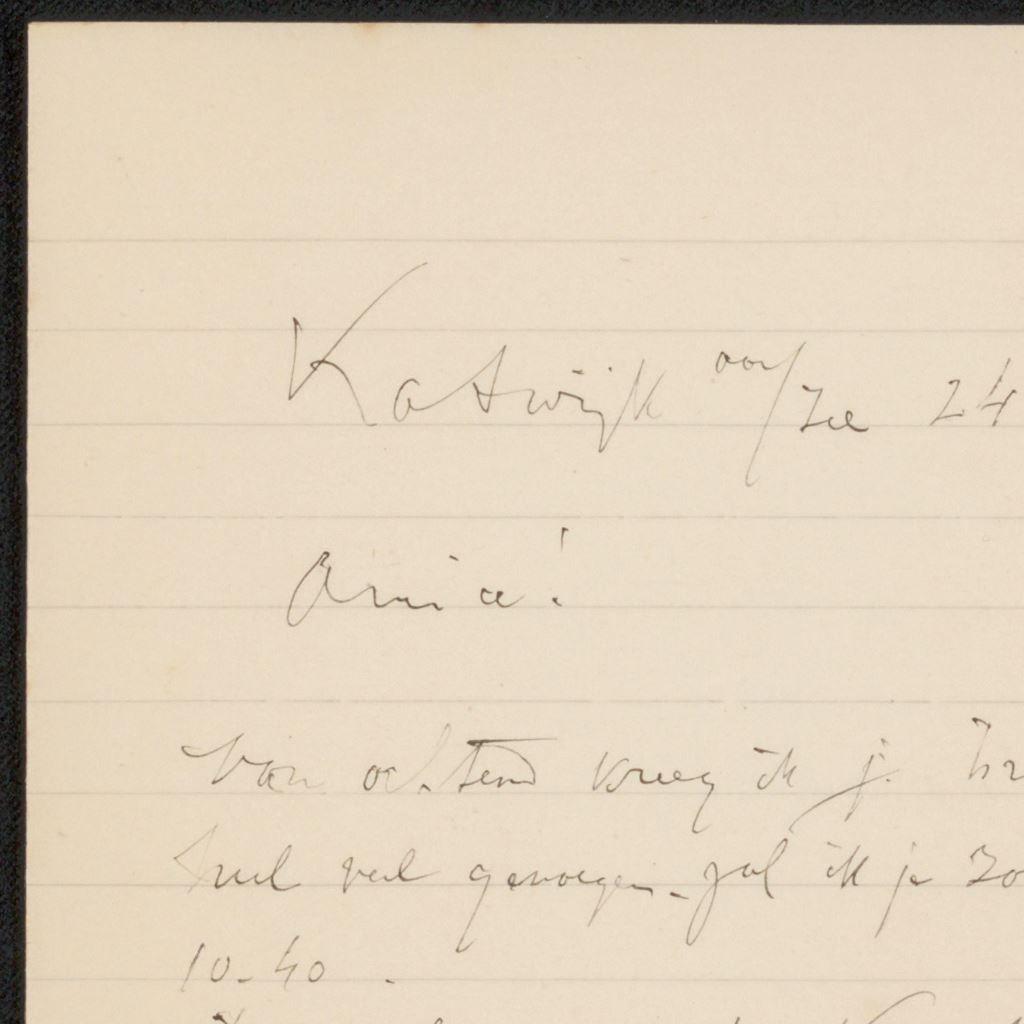 Katwijk aan/Zee 24
Amice!
Van ochtend kreeg ik je
Met veel genoegen zal ik je Zo
10-40.